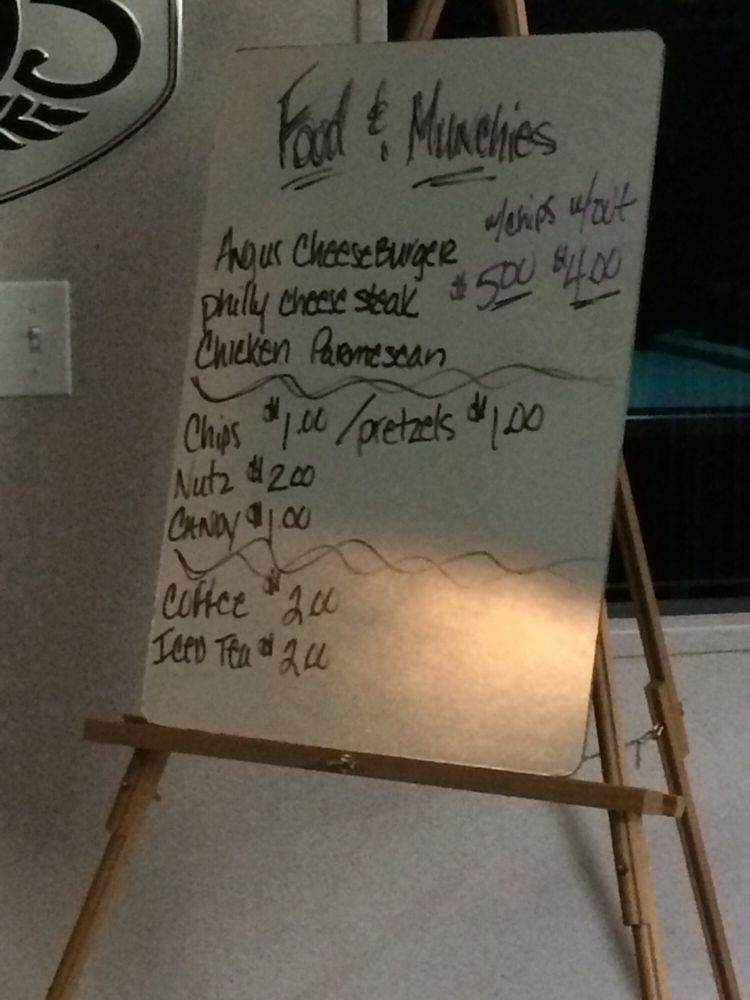 Food & Munchies
w/chips w/out
Angus CheeseBurger
philly cheese steak $5.00 $4.00
Chicken Parmesean
Chips $1.00 / pretzels $1.00
Nutz $2.00
CANDY $1.00
Coffee $2.00
Iced Tea $2.00